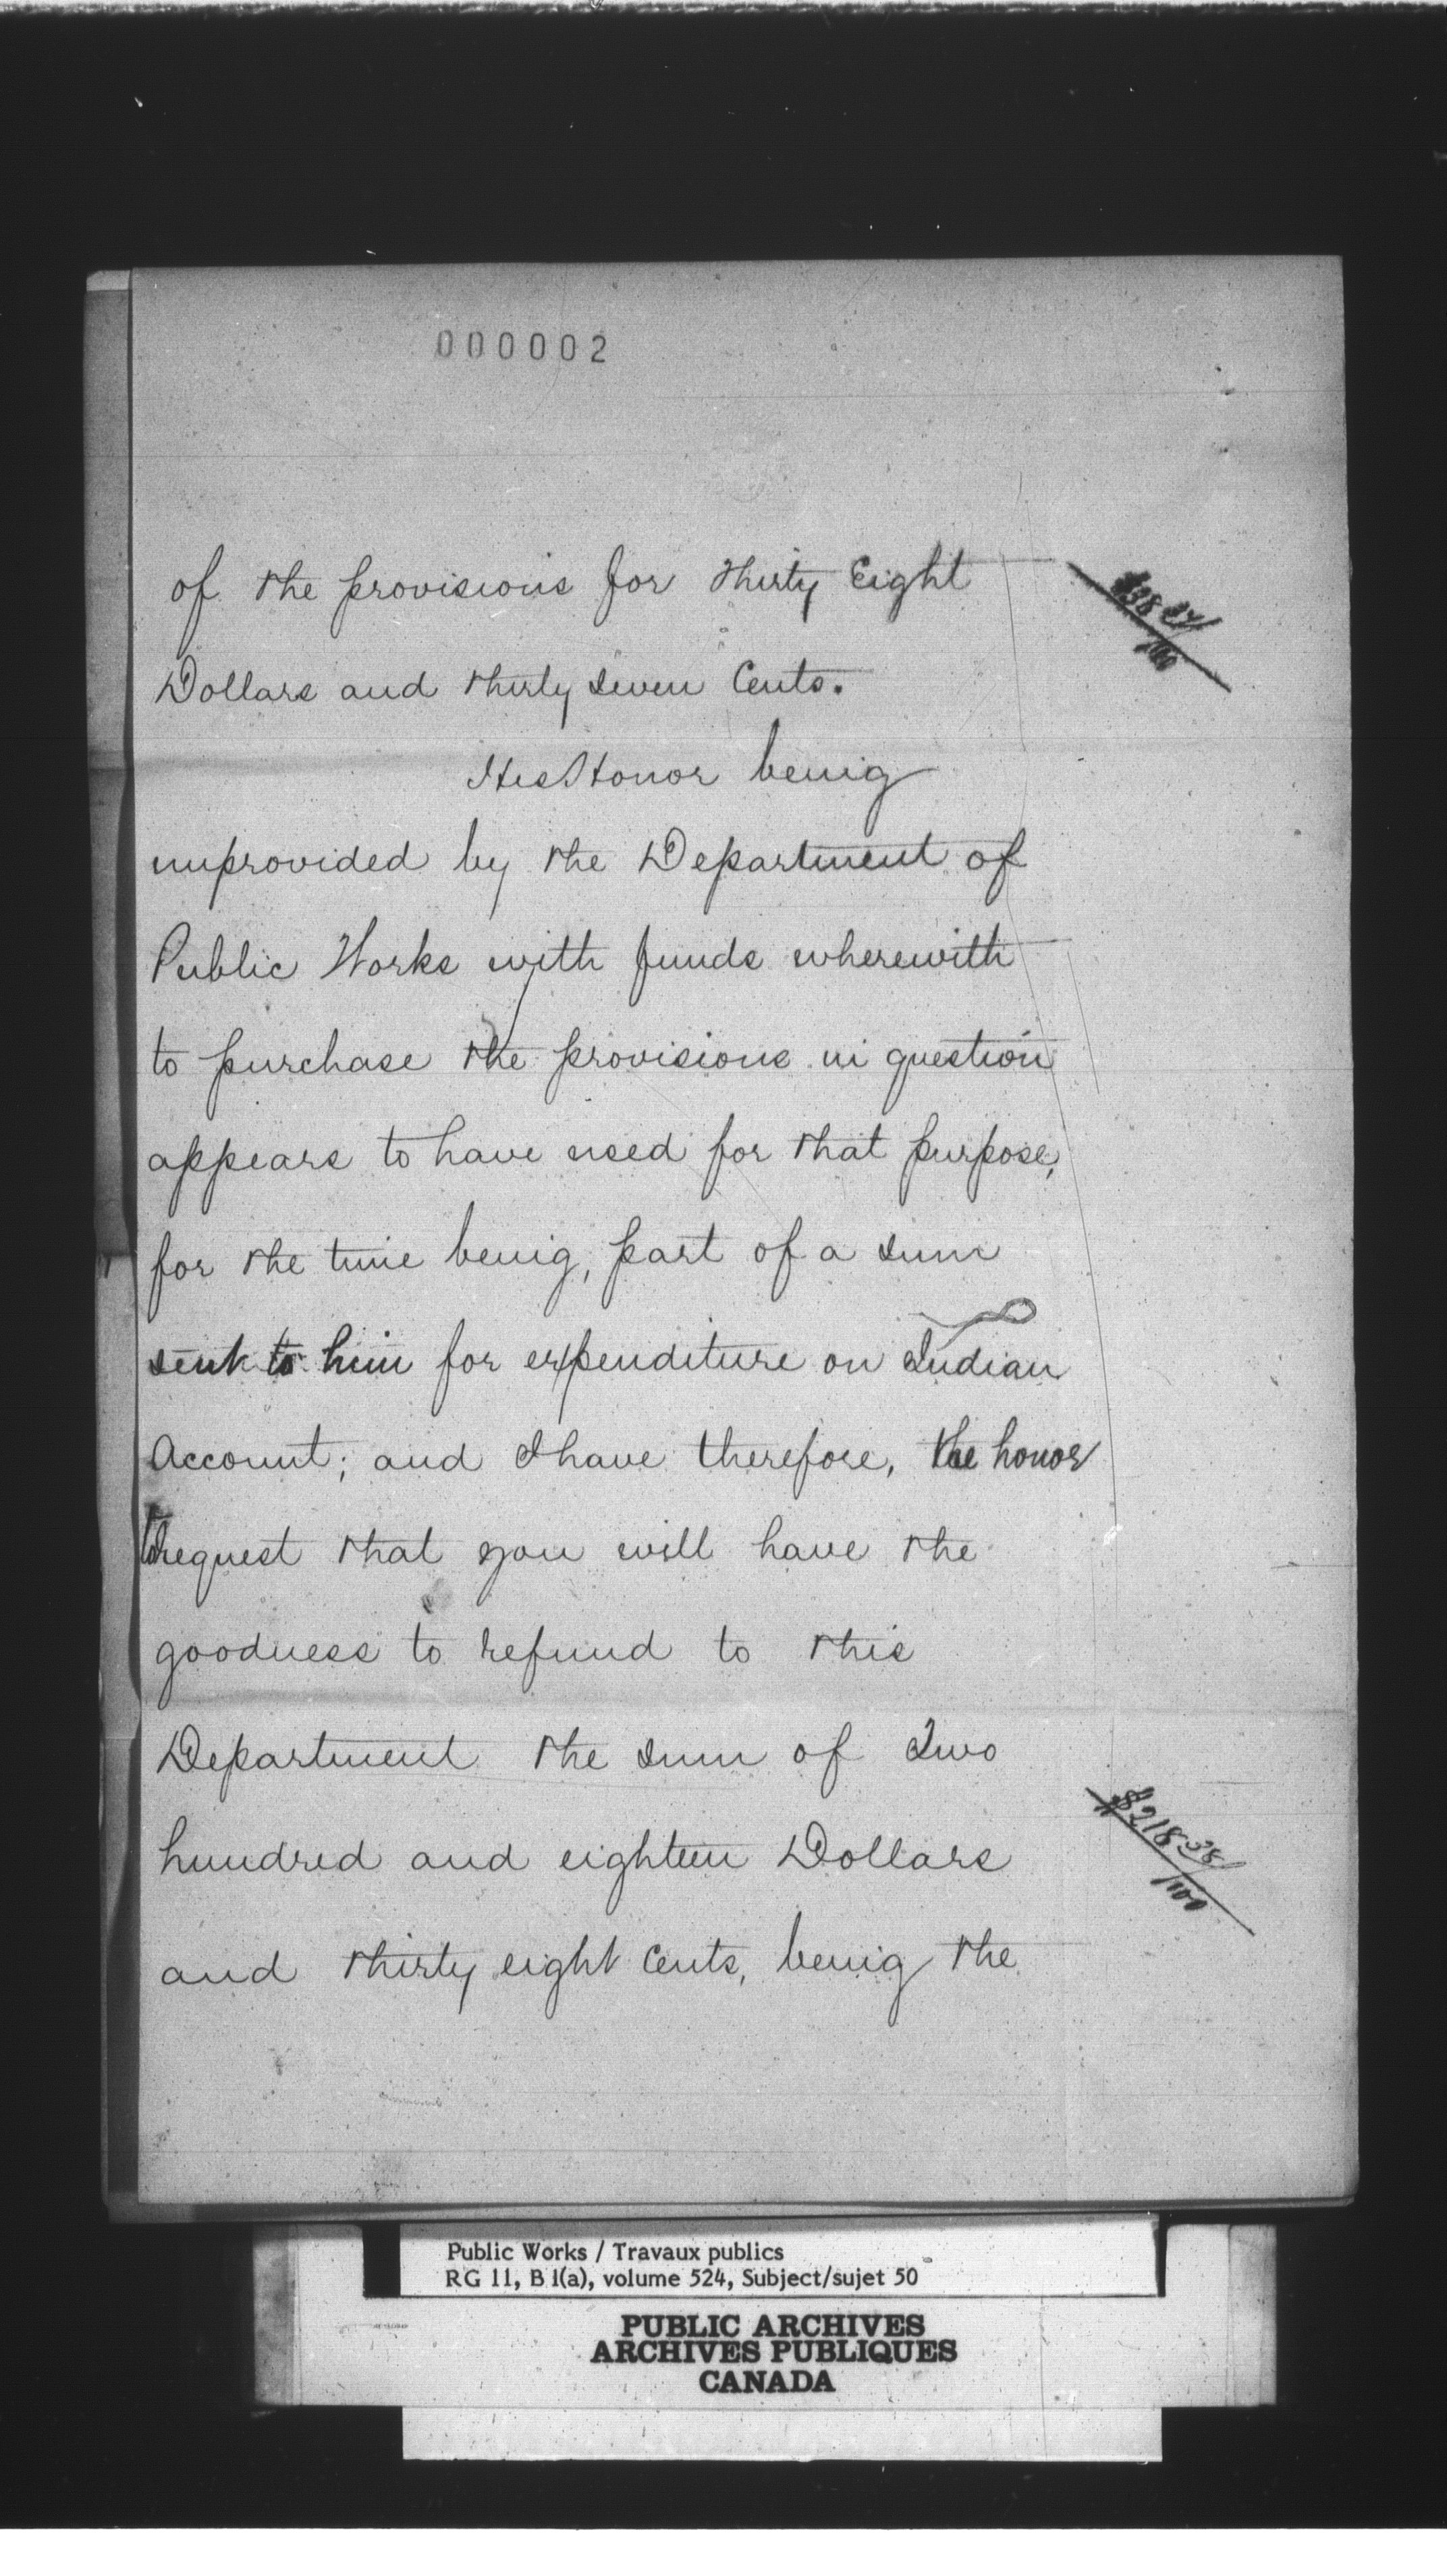 000002
of the provisions for thirty Eight
Dollars and thirty seven Cents.
His Honor being
unprovided by the Department of
Public Works with funds wherewith
to purchase the provisions in question
appears to have used for that purpose,
for the time being, part of a sum
sent to him for expenditure on Indian
Account; and I have therefore, the honor
to request that you will have the
goodness to refund to this
Department the sum of Two
hundred and eighteen Dollars
and thirty eight Cents, being the
$218 38/100
Public Works / Travaux publics
RG 11, B 1(a), volume 524, Subject/sujet 50
PUBLIC ARCHIVES
ARCHIVES PUBLIQUES
CANADA